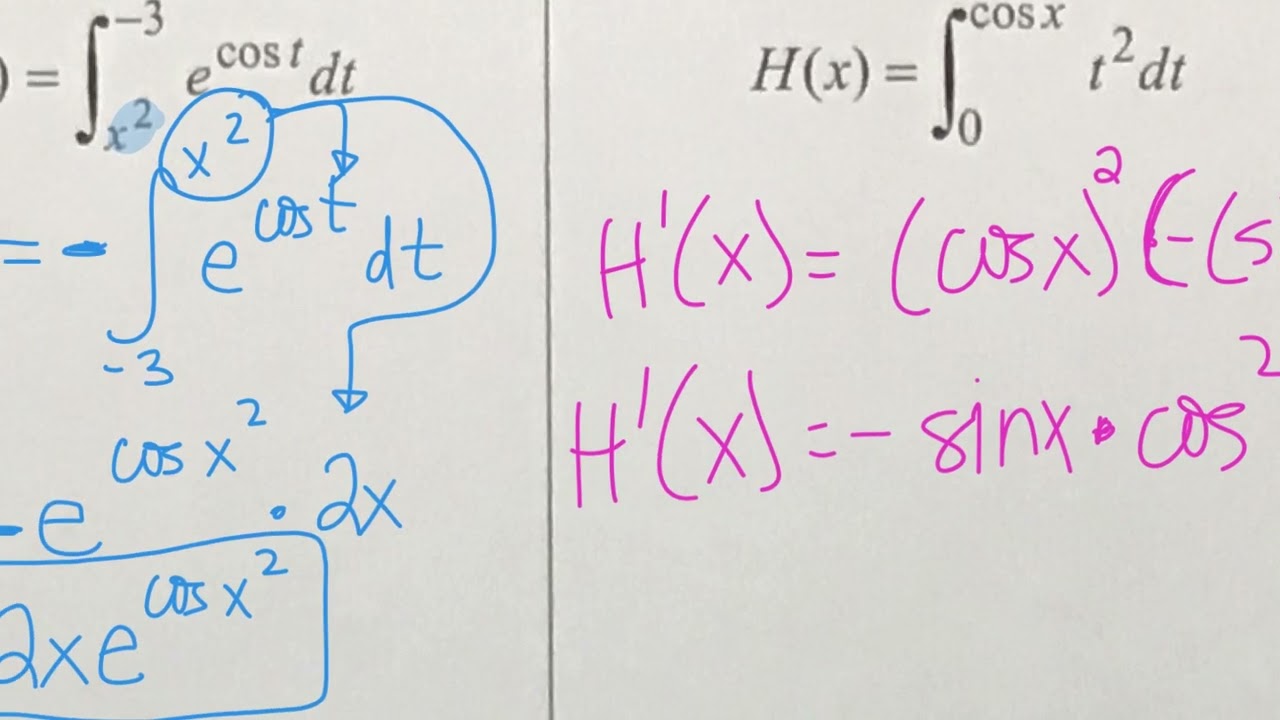 ) = ∫_{x^2}^{-3} e^{cos t} dt
= - ∫_{-3}^{x^2} e^{cos t} dt
- e^{cos x^2} · 2x
2xe^{cos x^2}
H(x) = ∫_0^{cos x} t^2 dt
H'(x) = (cos x)^2 (-(s
H'(x) = - sin x · cos^2